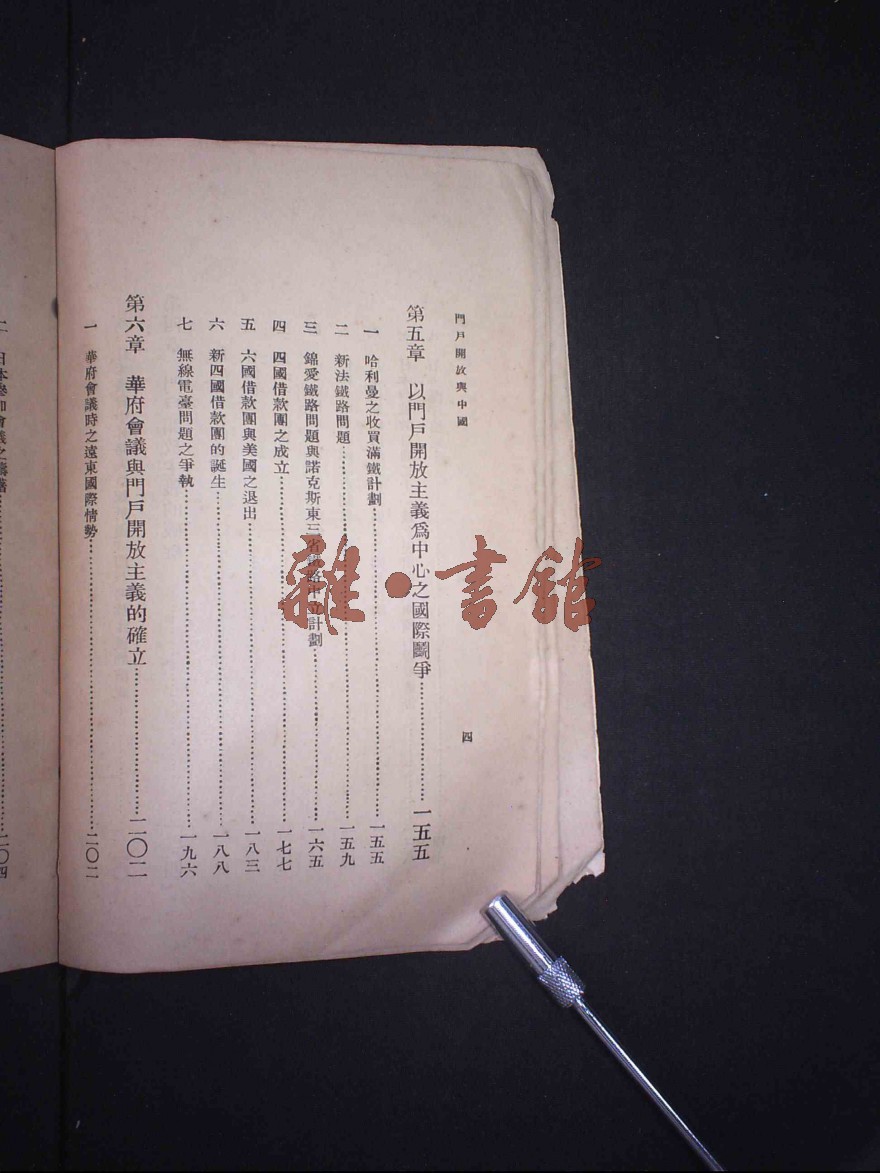 門戶開放與中國
四
第五章 以門戶開放主義爲中心之國際鬭爭……一五五
一 哈利曼之收買滿鐵計劃……一五五
二 新法鐵路問題……一五九
三 錦愛鐵路問題與諾克斯東三省鐵路中立計劃……一六五
四 四國借款團之成立……一七七
五 六國借款團與美國之退出……一八三
六 新四國借款團的誕生……一八八
七 無線電臺問題之爭執……一九六
第六章 華府會議與門戶開放主義的確立……二〇二
一 華府會議時之遠東國際情勢……二〇二
二 日本參加會議之躊躇……二〇四
雜·書館